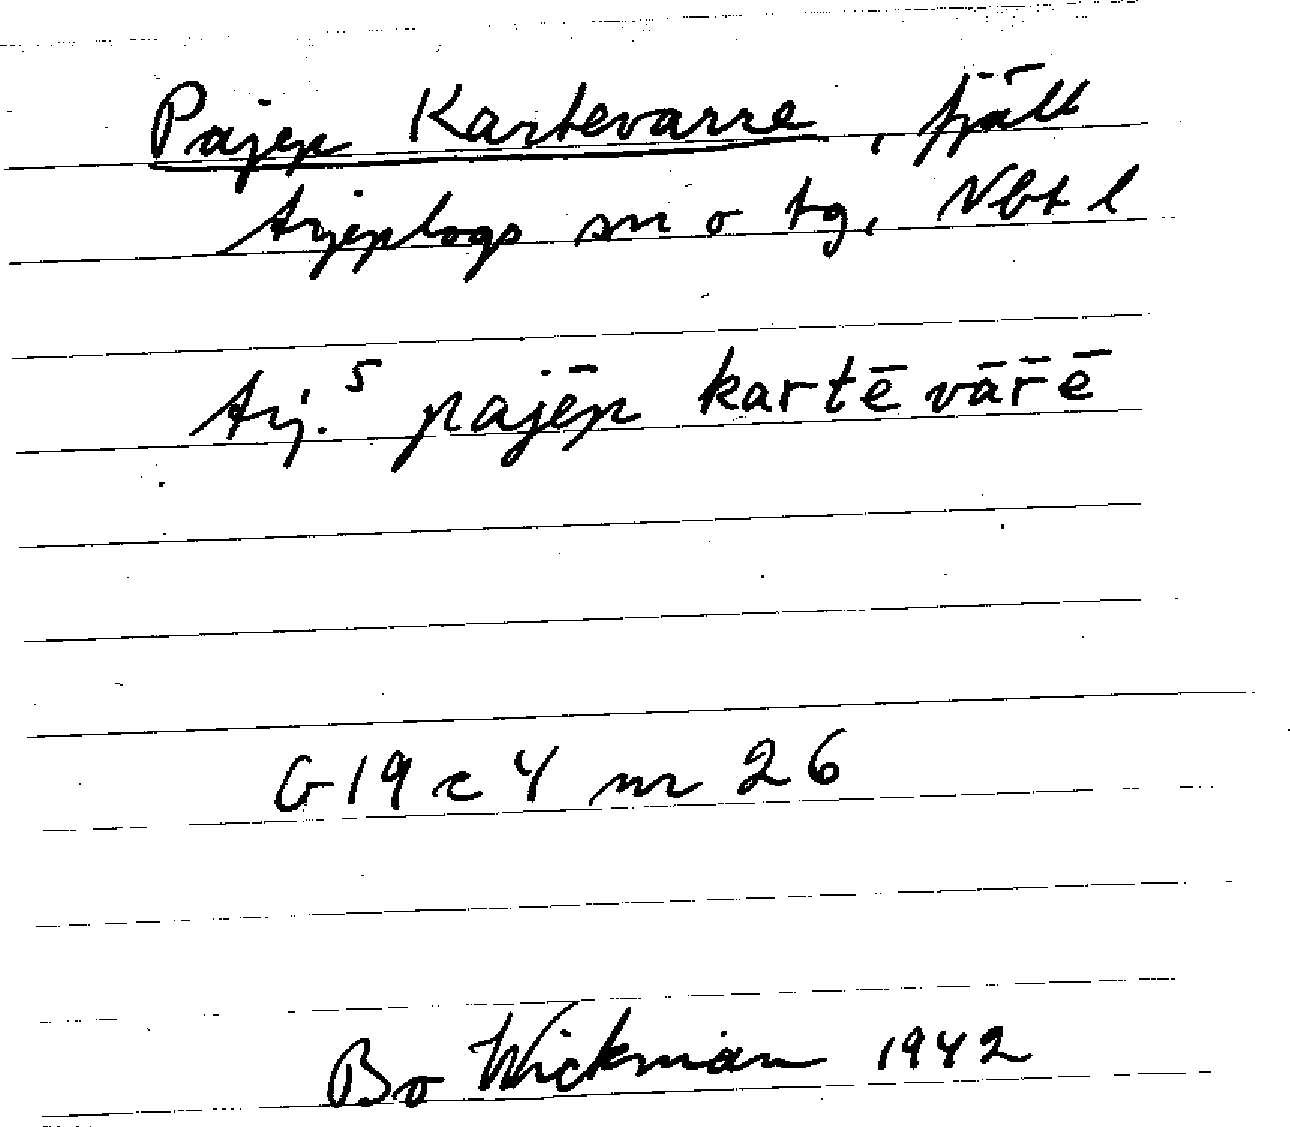 Pajep Kartevarre, fjäll
Arjeplogs sn o tg, Nbt l
Arj.⁵ pajēp kartē vāřē
G 19 c 4 nr 26
Bo Wickman 1942